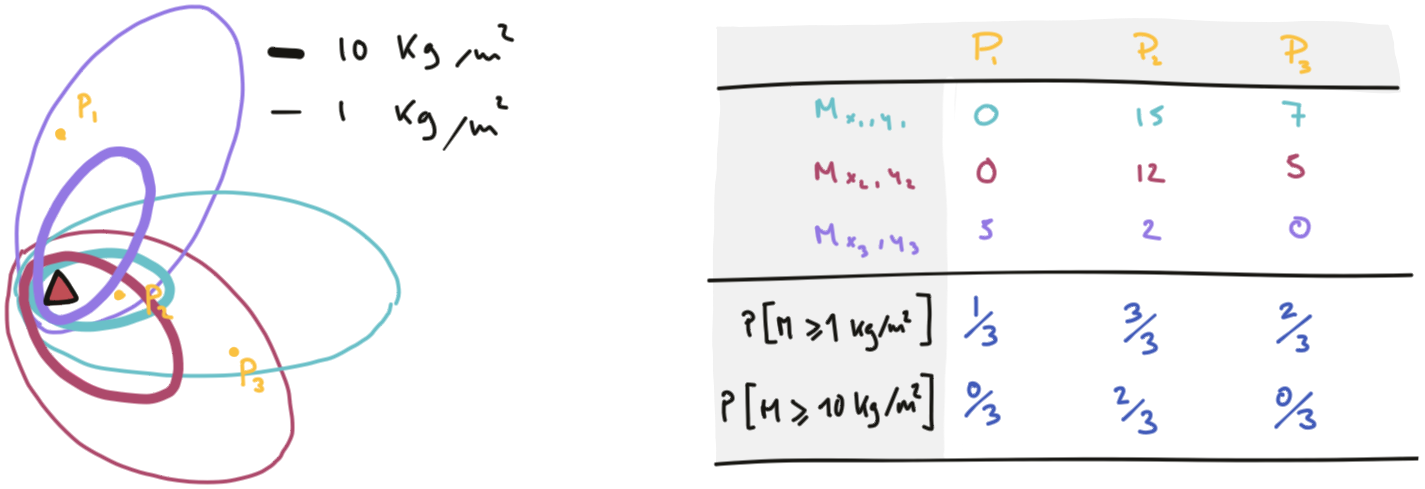 10 Kg/m²
1 Kg/m²
P₁
P₂
P₃
P₁ P₂ P₃
M x₁,y₁ 0 15 7
M x₂,y₂ 0 12 5
M x₃,y₃ 5 2 0
P[M ≥ 1 Kg/m²] 1/3 3/3 2/3
P[M ≥ 10 Kg/m²] 0/3 2/3 0/3